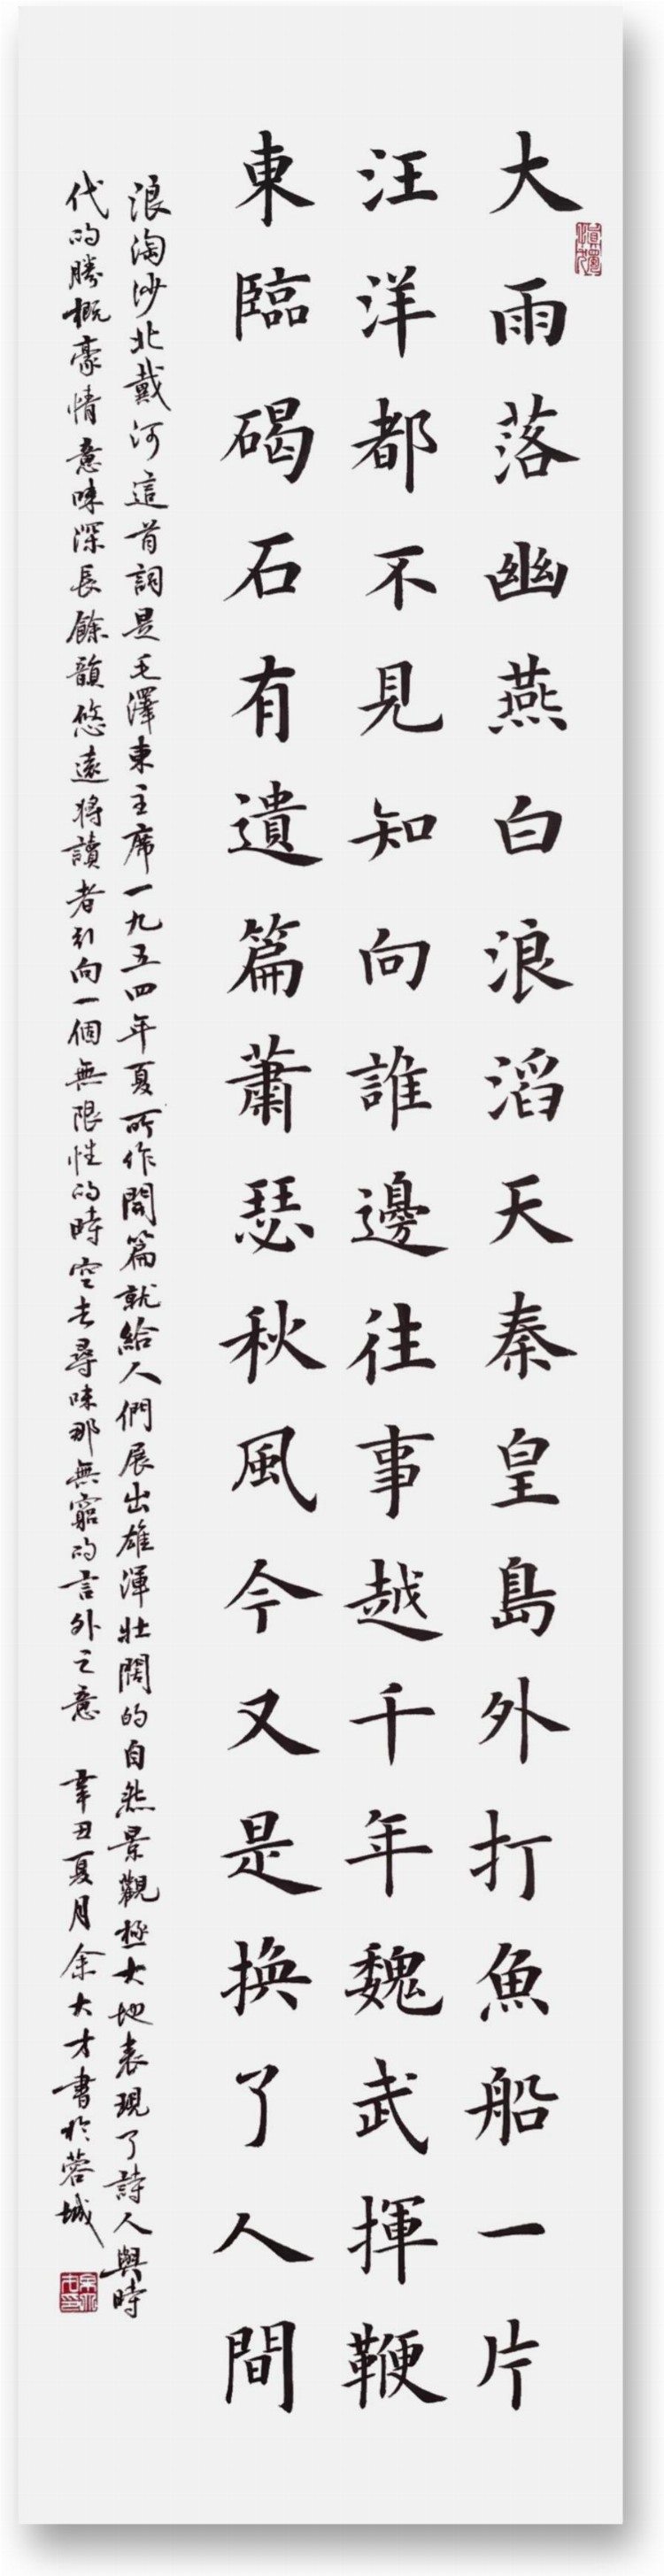 大雨落幽燕白浪滔天秦皇島外打魚船一片
汪洋都不見知向誰邊往事越千年魏武揮鞭
東臨碣石有遺篇蕭瑟秋風今又是換了人間
浪淘沙北戴河這首詞是毛澤東主席一九五四年夏所作開篇就給人們展出雄渾壯闊的自然景觀極大地表現了詩人與時
代的勝概豪情意味深長餘韻悠遠將讀者引向一個無限性的時空去尋味那無窮的言外之意 辛丑夏月余大才書於蓉城